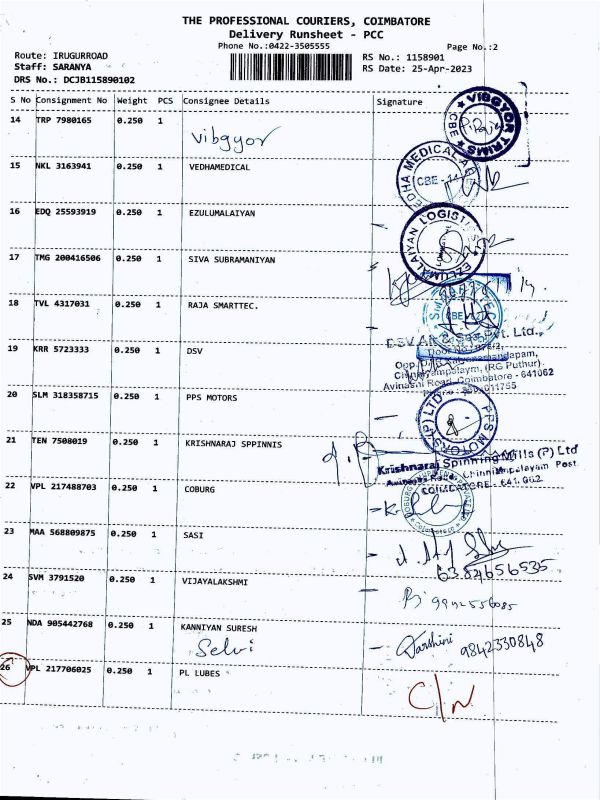 THE PROFESSIONAL COURIERS, COIMBATORE
Delivery Runsheet - PCC
Phone No.:0422-3505555
Page No.:2
Route: IRUGURROAD
RS No.: 1158901
Staff: SARANYA
RS Date: 25-Apr-2023
DRS No.: DCJB115890102
S No Consignment No Weight PCS Consignee Details Signature
14 TRP 7980165 0.250 1
vibgyor
VIBGYOR TRIMS CBE
15 NKL 3163941 0.250 1 VEDHAMEDICAL
CBE - 14
16 EDQ 25593919 0.250 1 EZULUMALAIYAN
EZLUMALAIYAN LOGISTICS
17 TMG 200416506 0.250 1 SIVA SUBRAMANIYAN
18 TVL 4317031 0.250 1 RAJA SMARTTEC.
19 KRR 5723333 0.250 1 DSV
Pvt. Ltd.,
Avinashi Road, Coimbatore - 641062
20 SLM 318358715 0.250 1 PPS MOTORS
PPS MOTORS (P) LTD
21 TEN 7508019 0.250 1 KRISHNARAJ SPPINNIS
Krishnaraj Spinning Mills (P) Ltd
Chinniampalayam Post
COIMBATORE - 641 062
22 VPL 217488703 0.250 1 COBURG
23 MAA 568809875 0.250 1 SASI
6382656535
24 SVM 3791520 0.250 1 VIJAYALAKSHMI
25 NDA 905442768 0.250 1 KANNIYAN SURESH
Selvi
Darshini 9842330848
26 VPL 217706025 0.250 1 PL LUBES
C/N